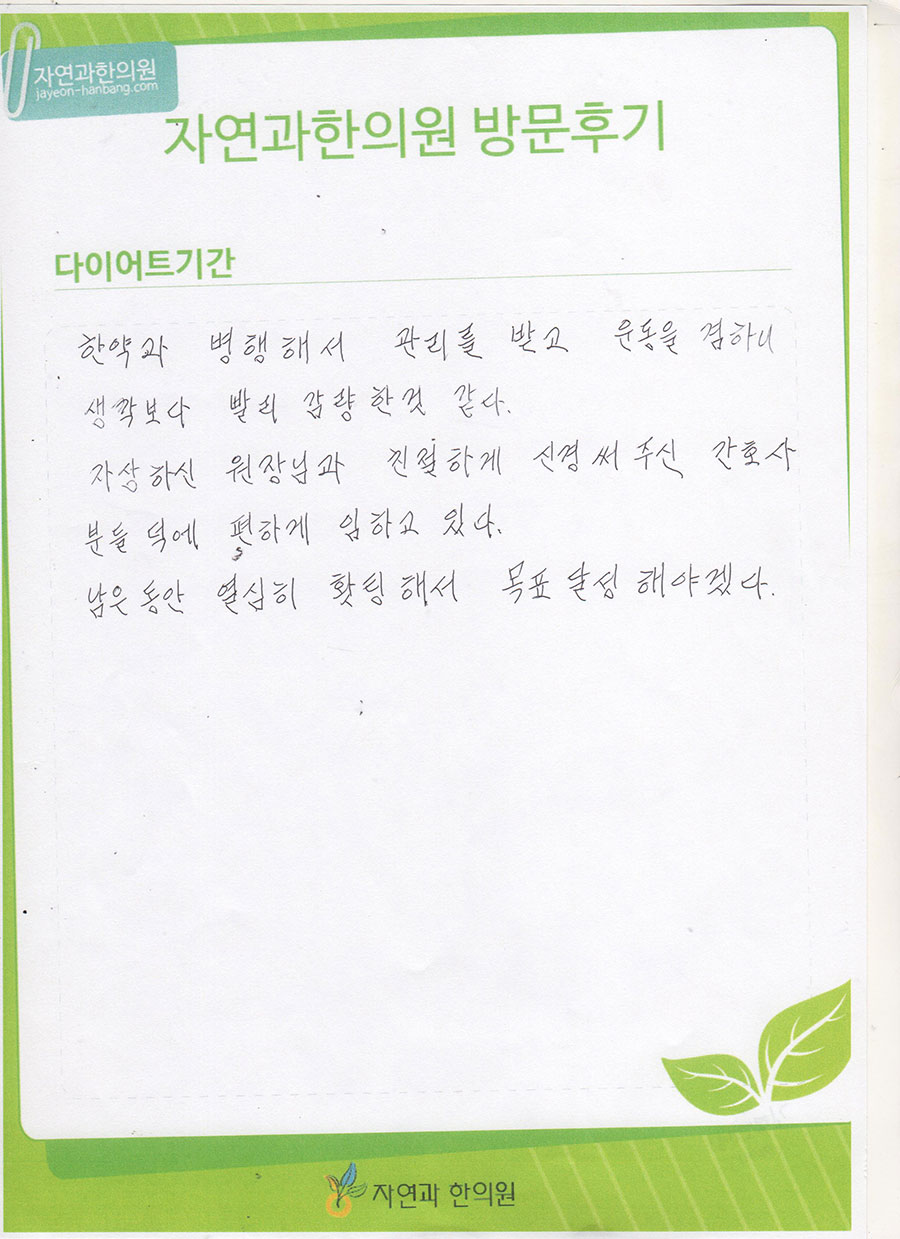 자연과한의원
jayeon-hanbang.com
자연과한의원 방문후기
다이어트기간
한약과 병행해서 관리를 받고 운동을 겸하니
생각보다 빨리 감량한것 같다.
자상하신 원장님과 친절하게 신경써주신 간호사
분들 덕에 편하게 임하고 있다.
남은 동안 열심히 홧팅해서 목표달성해야겠다.
자연과 한의원